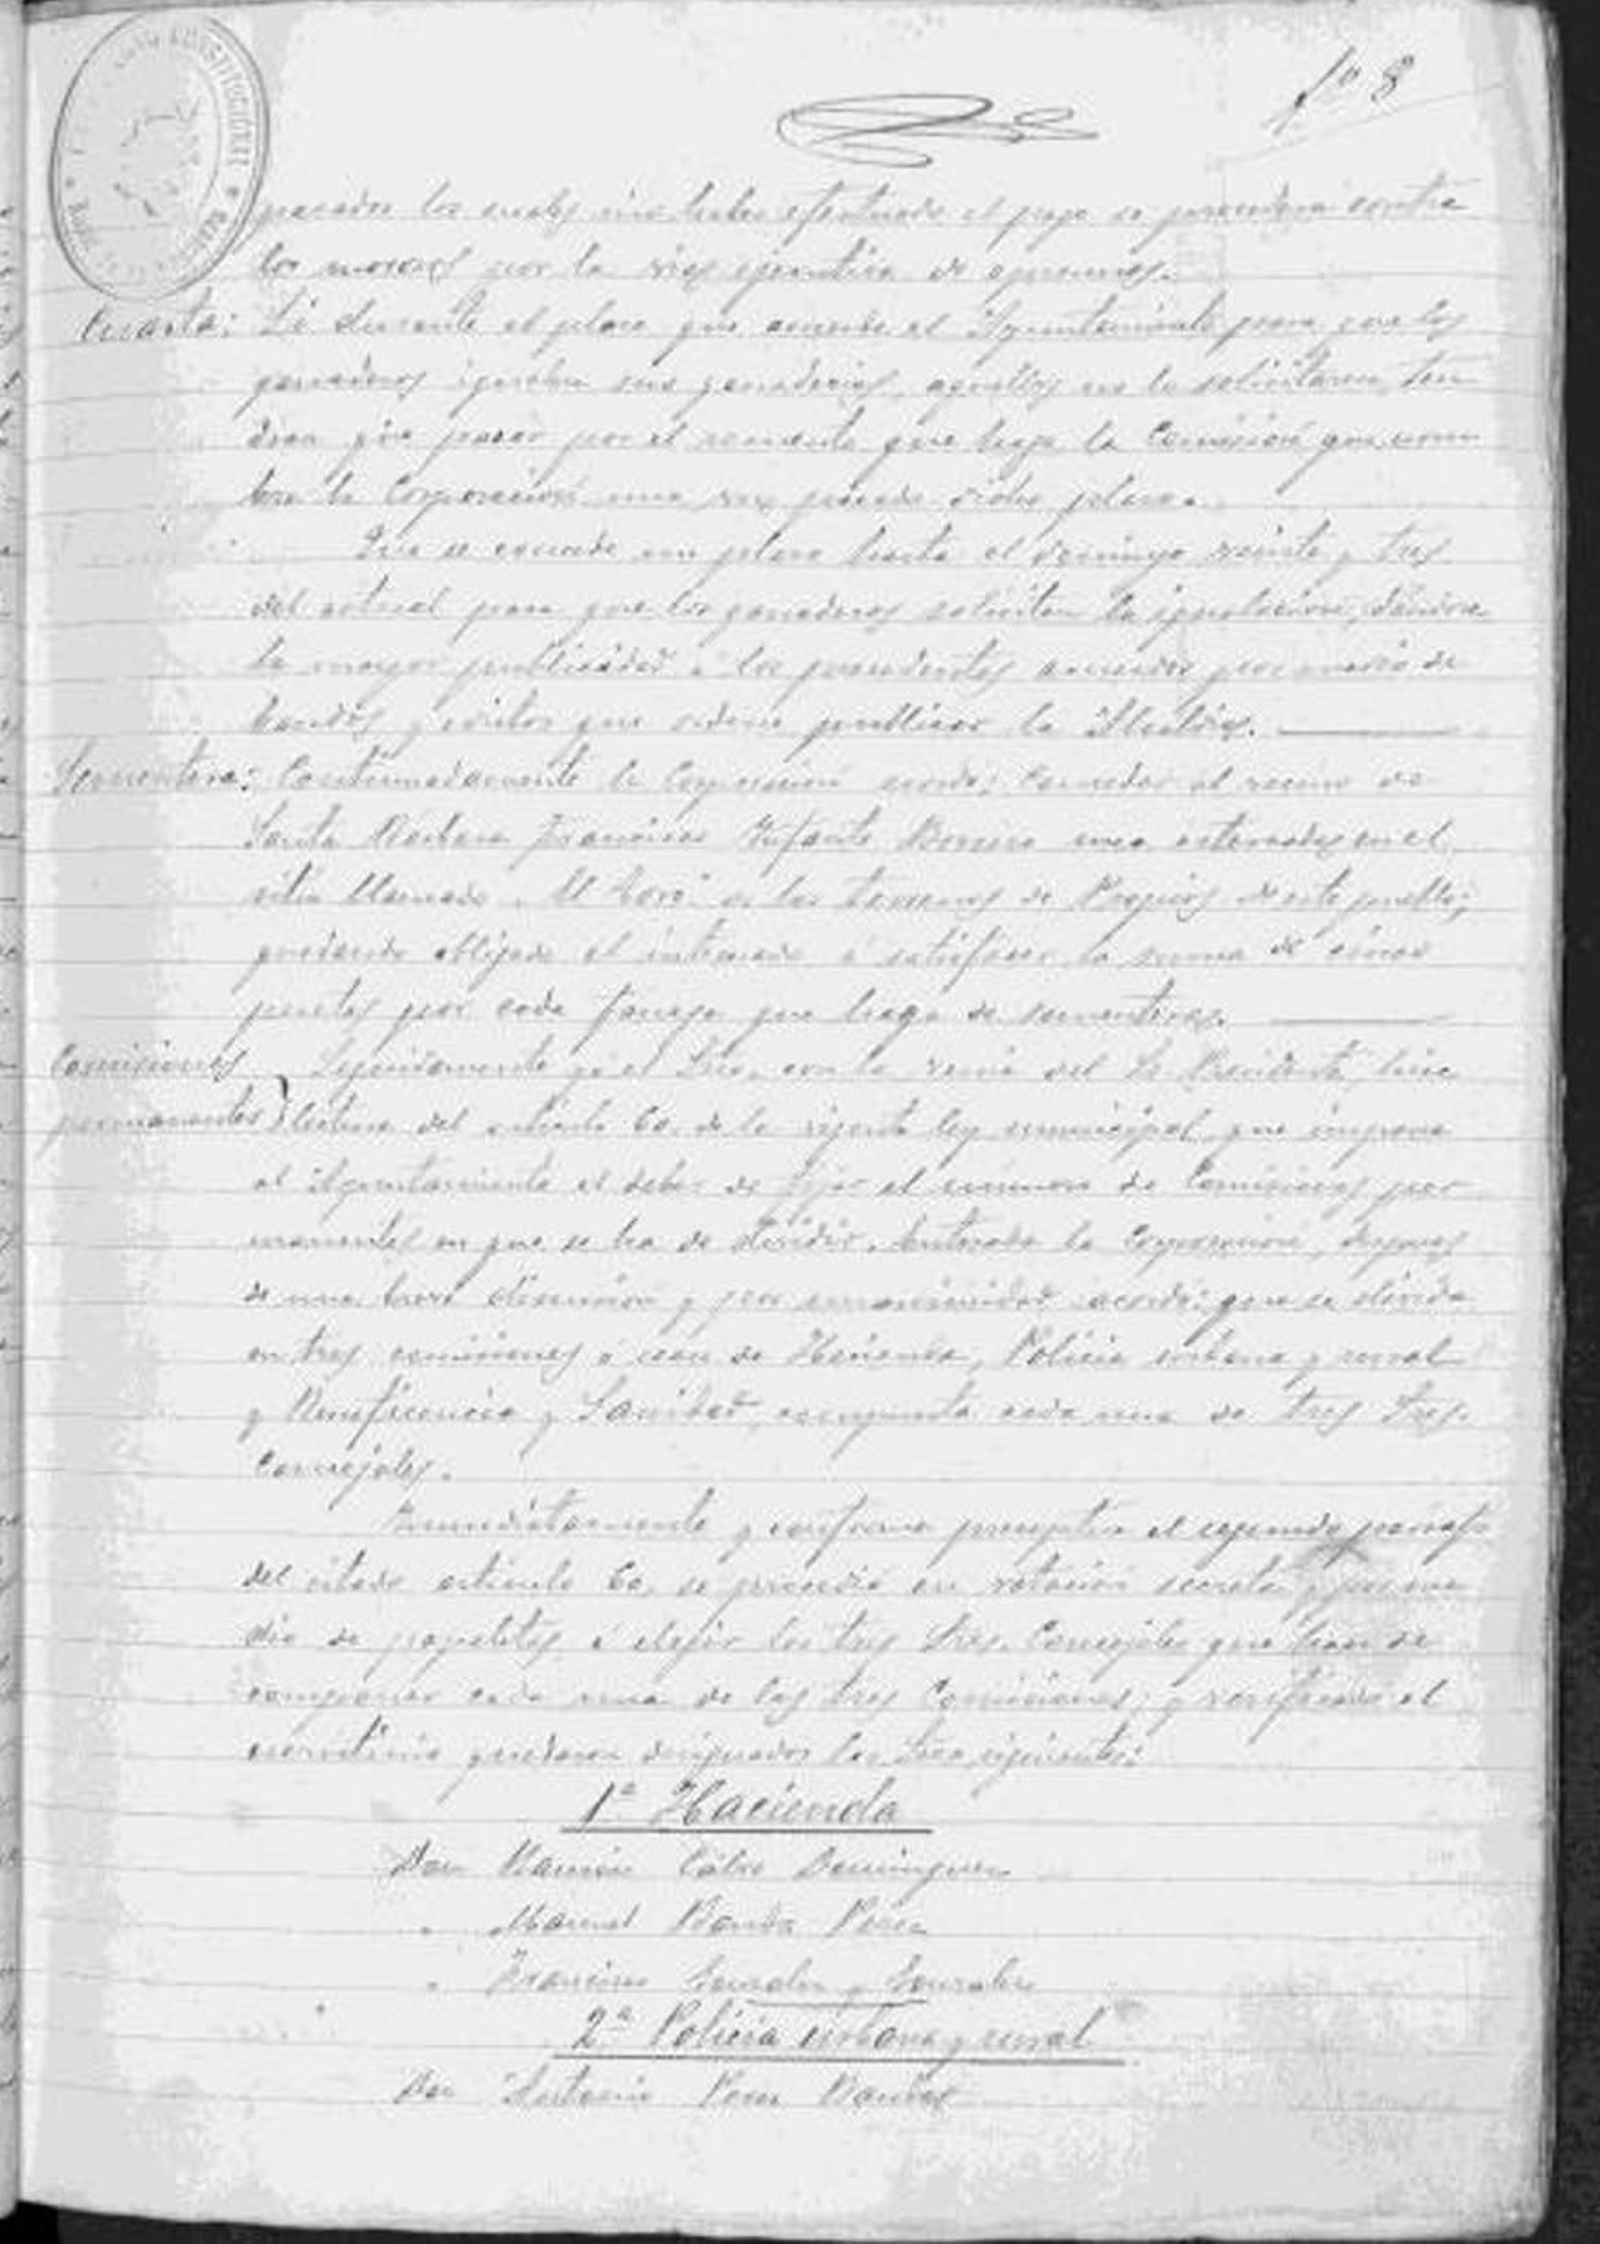 fº 8
CONSTITUCIONAL
pasados los cuales sin haber efectuado el pago se procederá contra
los morosos por la via ejecutiva de apremios.
Cuarta: Si durante el plazo que acuerde el Ayuntamiento para que los
ganaderos igualen sus ganaderias, aquellos no lo solicitaren, ten
dran que pasar por el recuento que haga la Comisión que nom
bre la Corporación una vez pasado dicho plazo.
Que se concede un plazo hasta el domingo veinte y tres
del actual para que los ganaderos soliciten la igualacion, dándose
la mayor publicidad á los precedentes acuerdos por medio de
bandos y edictos que ordene publicar la Alcaldia.
Sementera: Continuadamente la Corporación acordó: Conceder al vecino de
Santa Bárbara Francisco Infante Borrero una en el
sitio llamado de los terrenos de Propios de este pueblo;
quedando obligado el interesado á satisfacer la suma de cinco
pesetas por cada fanega que haga de sementera.
Comisiones Seguidamente yo el Srio. con la venia del Sr. Presidente, hice
permanentes) lectura del articulo 60 de la vigente ley municipal que impone
al Ayuntamiento el deber de fijar el número de Comisiones per
manentes en que se ha de dividir. Enterada la Corporación, despues
de una breve discusión y por unanimidad acordó: que se divida
en tres comisiones ó sean de Hacienda, Policia urbana y rural
y Beneficencia y Sanidad, compuesta cada una de tres Sres.
Concejales.
Inmediatamente y conforme preceptua el segundo parrafo
del citado articulo 60, se procedió en votación secreta y por me
dio de papeletas á elegir los tres Sres. Concejales que han de
componer cada una de las tres Comisiones; y verificado el
escrutinio quedaron designados los Sres. siguientes:
1ª Hacienda
Don Ramón Calvo Dominguez
" Manuel Banda Perez
" Francisco Gonzalez y Gonzalez
2ª Policia urbana y rural
Don Antonio Ponce